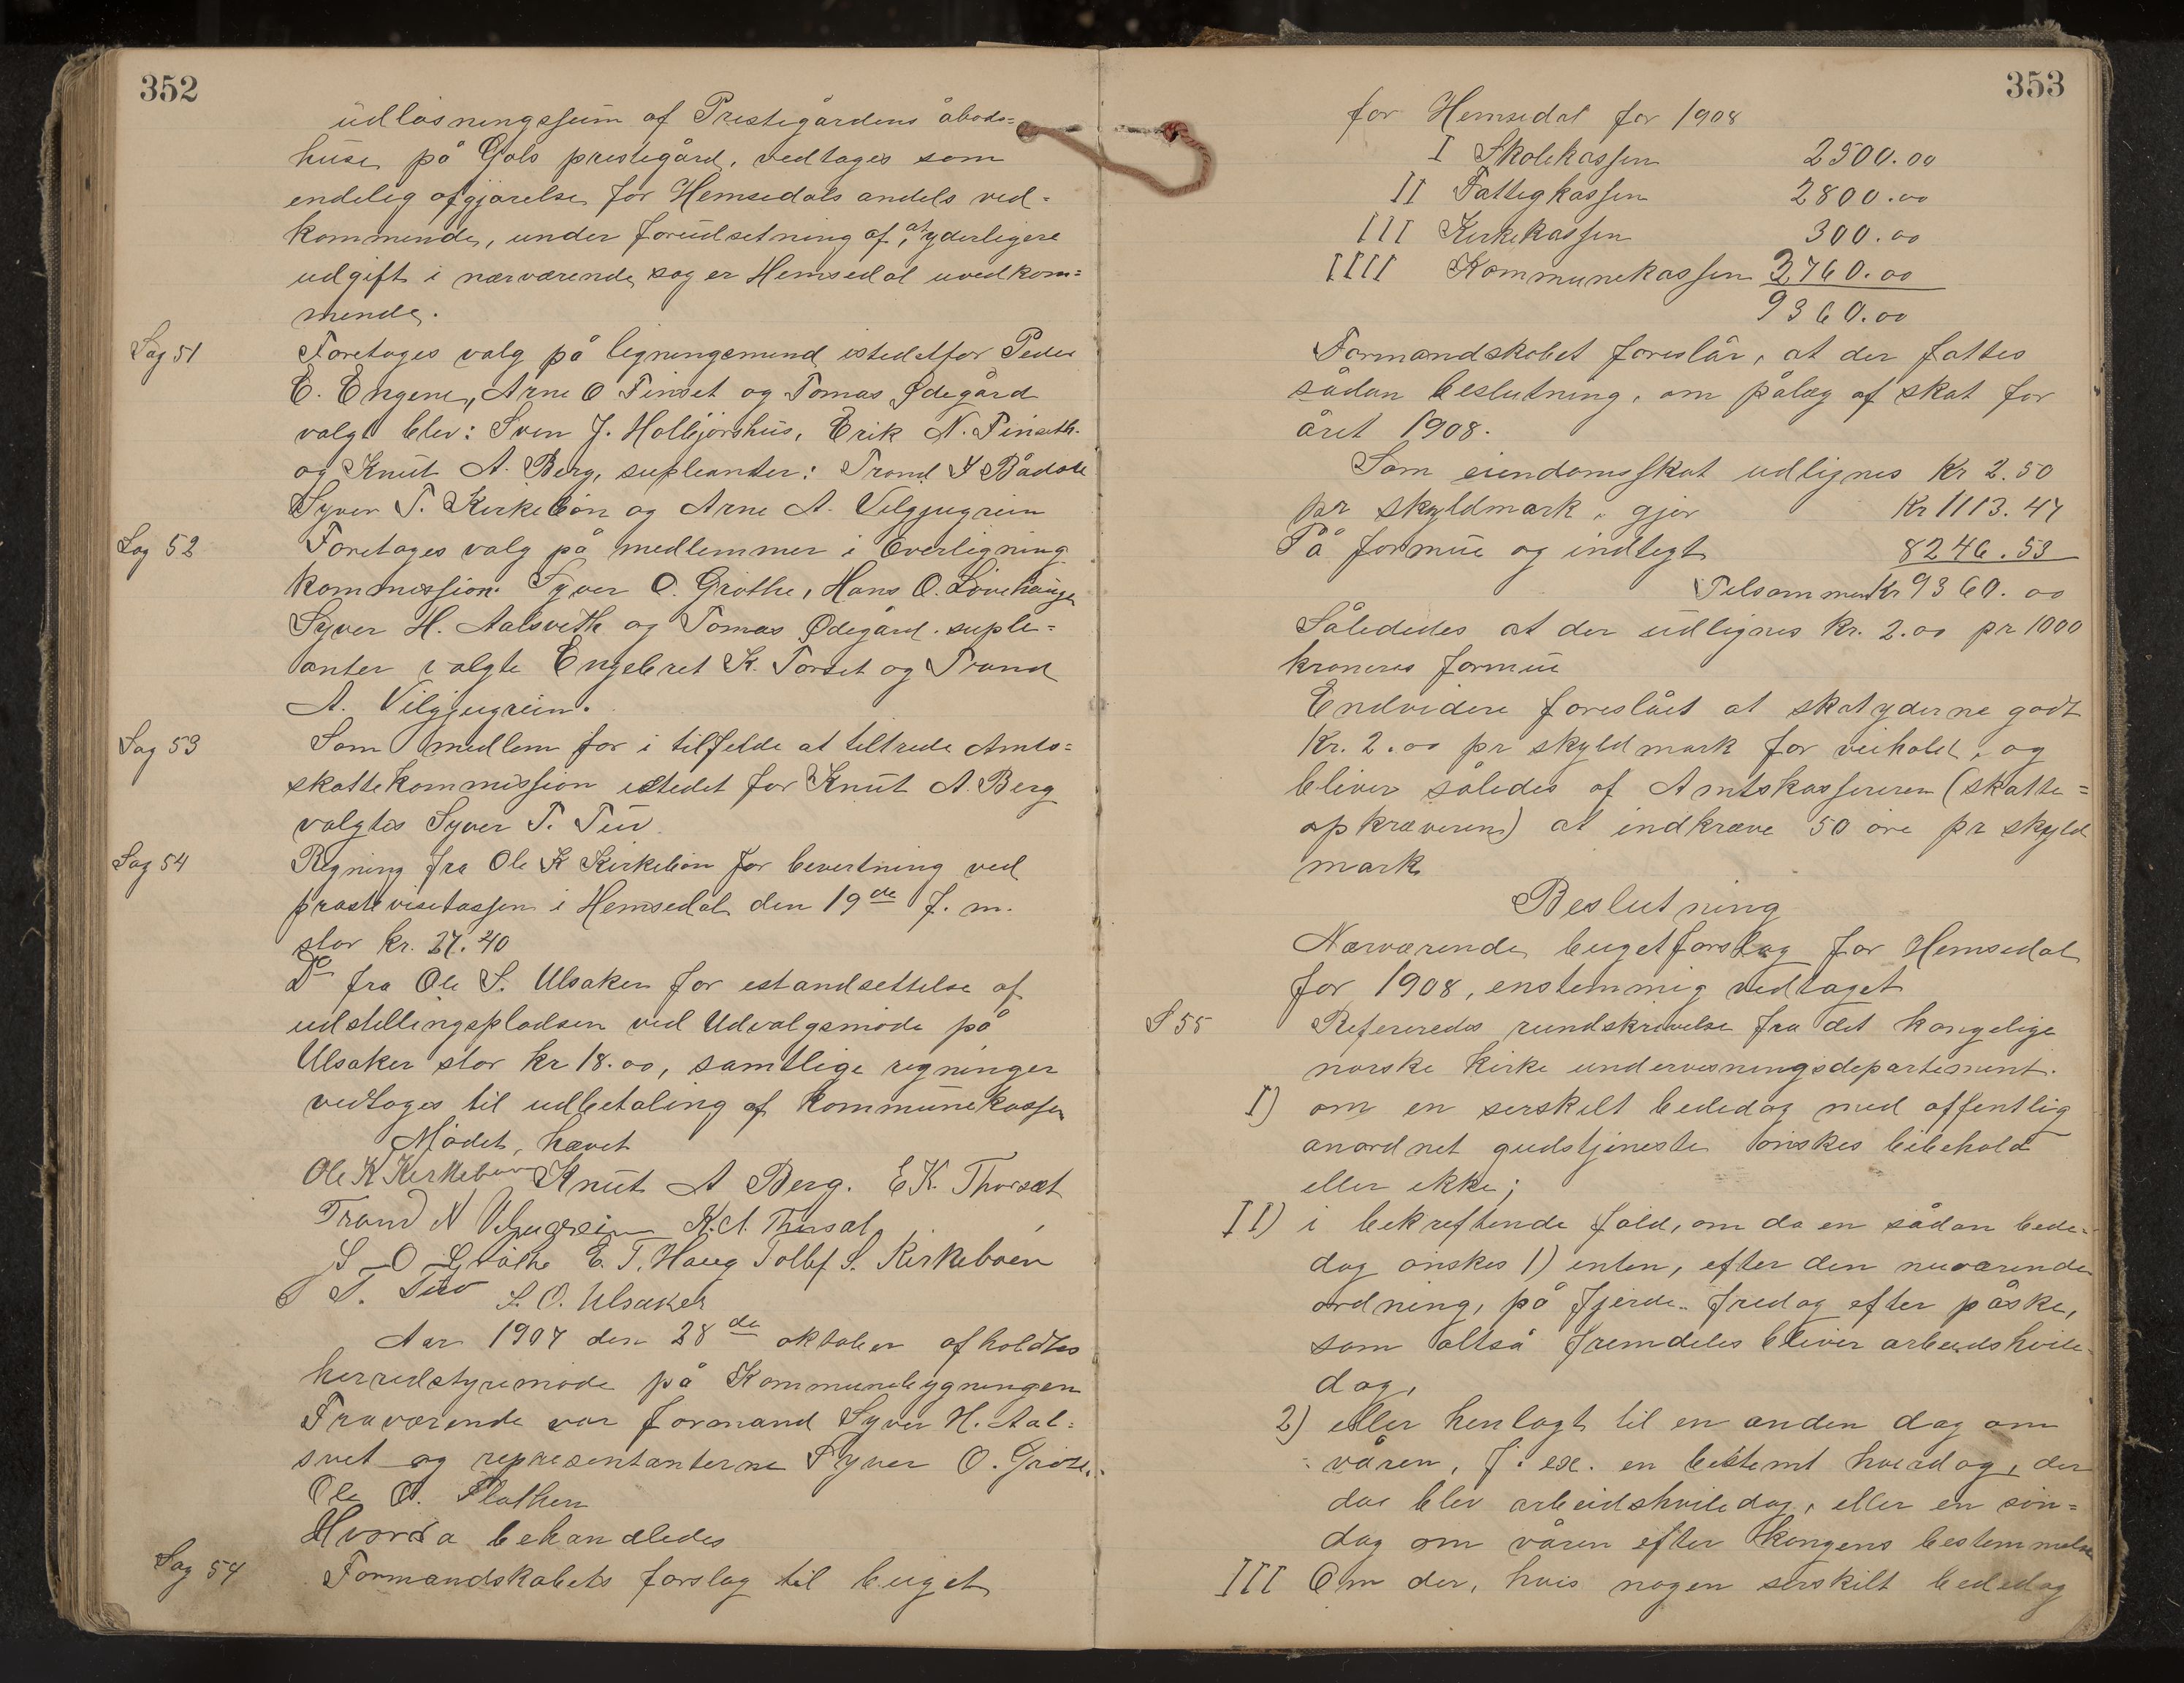 352
udløsningssum af Prestegårdens åbods=
huse på Gols prestegård, vedtages som
endelig afgjørelse for Hemsedals andels ved=
kommende, under forudsetning af, at yderligere
udgift i nærværende sag er Hemsedal uvedkom=
mende.
Sag 51 Foretages valg på ligningsmænd istedetfor Peder
E. Engene, Arne O Finset og Tomas Ødegård
valgt blev: Sven J. Holbjørshus, Erik N. Finseth.
og Knut A. Berg, supleanter: Trond
Syver T. Kirkebøn og Arne A. Velgjugrein
Sag 52 Foretages valg på medlemmer i Overligning
kommission. Syver O. Grøthe, Hans O. Løvehaug
Syver H. Aalsveth og Tomas Ødegård. suple=
anter valgte Engebret K. Torset og Trond
A. Vilgjugrein.
Sag 53 Som medlem for i tilfelde at tiltrede Amts=
skattekommission istedet for Knut A. Berg
valgtes Syver T. Tuv.
Sag 54 Regning fra Ole K Kirkebøn for bevertning ved
prostevisitassen i Hemsedal den 19de f. m.
stor kr. 27.40
Do fra Ole S. Ulsaker for istandsettelse af
udstillingspladsen ved Udvalgsmøde på
Ulsaker stor kr 18.00, samtlige regninger
vedtages til udbetaling af kommunekassen
Mødet hævet
Ole K Kirkeboen Knut A Berg. E K. Thorset
Trond N Velgugrein K. A. Thorset
S O Grøthe E. T. Haug Tollef S. Kirkeboen
S T. Tuv S. O. Ulsaker
Aar 1907 den 28de oktober afholdtes
herredstyremøde på Kommunebygningen
Fraværende var formand Syver H. Aal=
svet og representanterne Syver O. Grøte,
Ole O. Flathen
Hvorda behandledes
Sag 54 Formandskabets forslag til buget
353
for Hemsedal for 1908
I Skolekassen 2500.00
II Fattigkassen 2800.00
III Kirkekassen 300.00
IIII Kommunekassen 3760.00
9360.00
Formandskabet foreslår, at der fattes
sådan beslutning, om pålæg af skat for
året 1908.
Som eiendomsskat udlignes Kr 2.50
pr skyldmark, gjør Kr 1113.47
På formue og indtegt 8246.53
Tilsammen Kr 9360.00
Således at der udlignes Kr. 2.00 pr 1000
kroners formue
Endvidere foreslået at skatyderne godt
Kr. 2.00 pr skyldmark for veihold, og
bliver således af Amtskassereren (skatte=
opkræveren) at indkræve 50 øre pr skyld
mark
Beslutning
Nærværende bugetforslag for Hemsedal
for 1908, enstemmig vedtaget
S 55 Refereredes rundskrivelse fra det kongelige
norske kirke undervisningsdepartement.
I) om en serskilt bededag med offentlig
anordnet gudstjeneste ønskes bibehold
eller ikke;
II) i bekreftende fald, om da en sådan bede=
dag ønskes 1) enten, efter den nuværende
ordning, på fjerde fredag efter påske,
som altså fremdeles bliver arbeidshvile=
dag,
2) eller henlagt til en anden dag om
våren, f. ex. en bestemt hverdag, der
da blev arbeidshviledag, eller en søn=
dag om våren efter kongens bestemmelse
III Om der, hvis nogen serskilt bededag